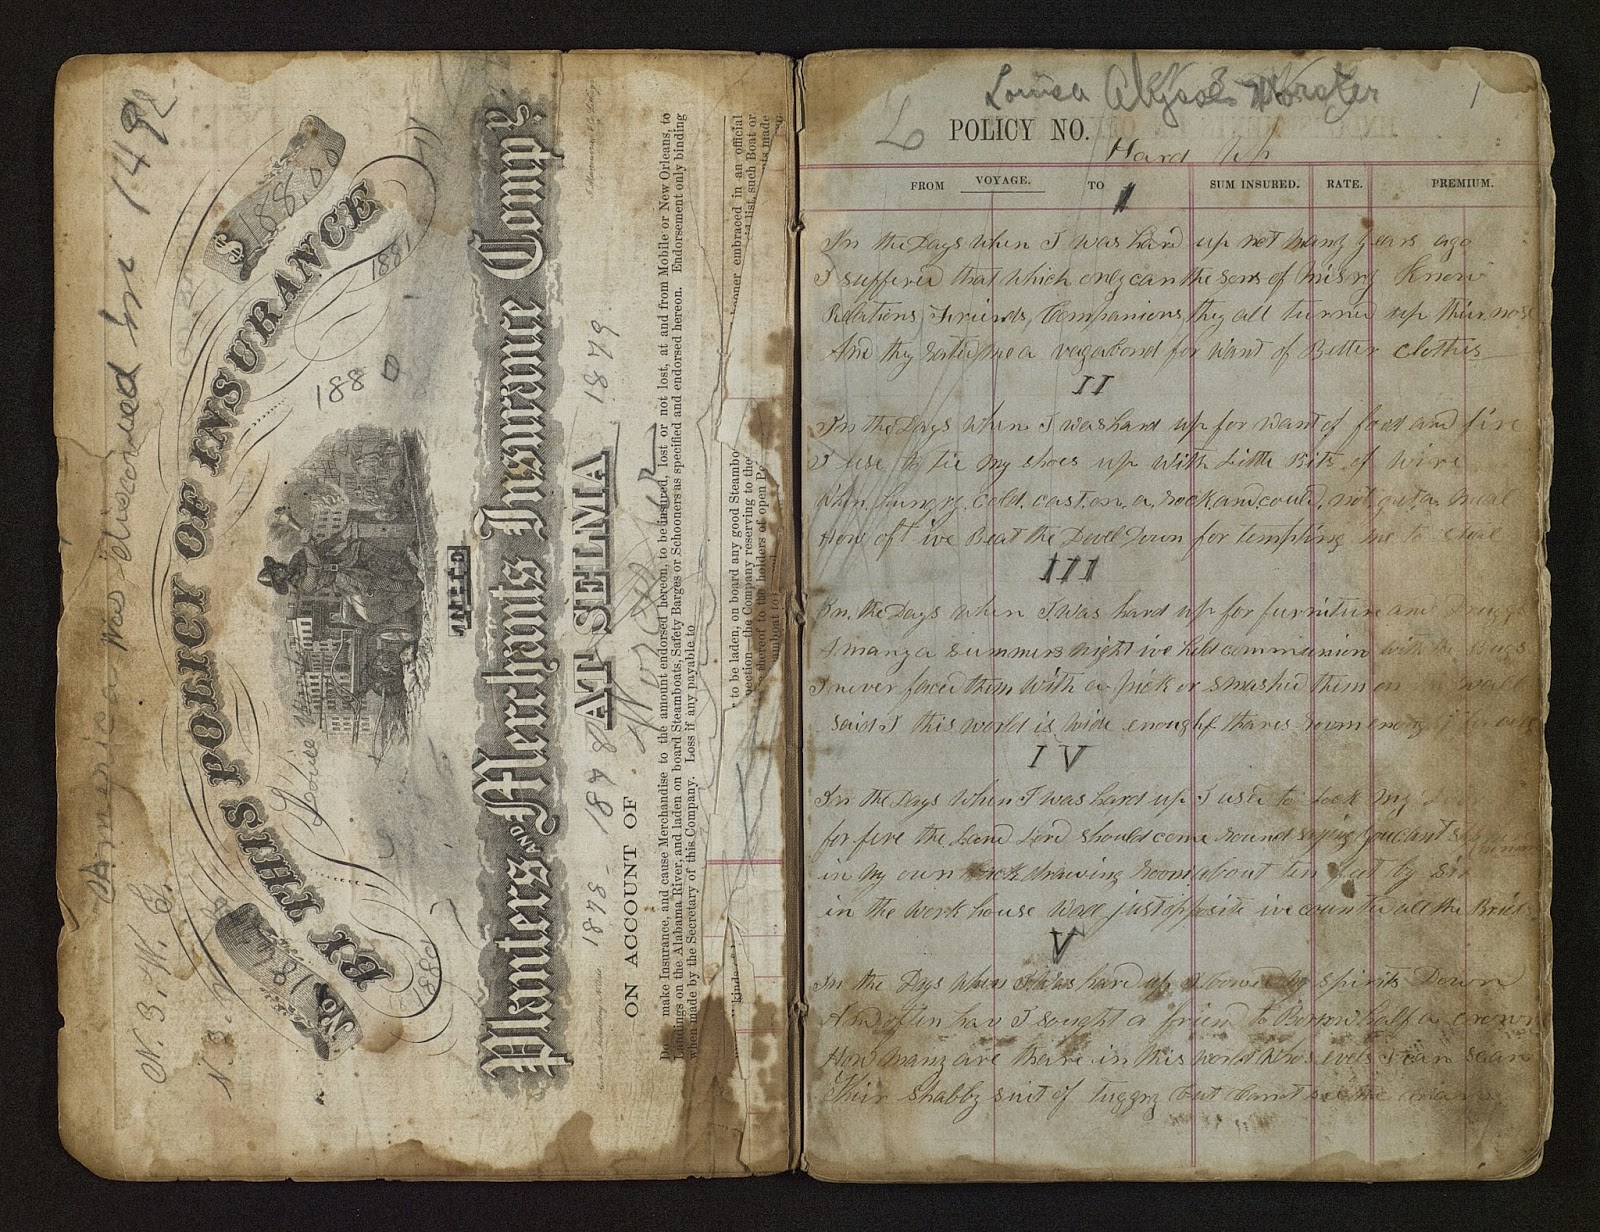 America was discovered in 149
N. B. W. G.
N. B.
$ 188
1881
1880
BY THIS POLICY OF INSURANCE
No. 18
1880
Louie
THE
Planters AND Merchants Insurance Compy.
AT SELMA
1878 - 1898
1879
ON ACCOUNT OF
Do make Insurance, and cause Merchandise to the amount endorsed hereon, to be insured, lost or not lost, at and from Mobile or New Orleans, to
Landings on the Alabama River, and laden on board Steamboats, Safety Barges or Schooners as specified and endorsed hereon. Endorsement only binding
when made by the Secretary of this Company. Loss if any payable to
to be laden, on board any good Steambo
ooner embraced in an official
section the Company reserving to the
list, such Boat or
thereof to the holders of open Po
ts made
Louisa
1
L POLICY NO.
Hard Up
FROM VOYAGE. TO SUM INSURED. RATE. PREMIUM.
I
In the Days when I was hard up not many years ago
I suffered that which only can the sons of misry know
Relations Friends, Companions they all turned up thier nose
And they rated me a vagabond for want of Better clothes
II
In the Days when I was hard up for want of food and fire
I use to tie my shoes up with Little Bits of wire
When hungry cold cast on a rock and could not get a meal
How oft ive Beat the Devel Down for tempting me to steal
III
In the Days when I was hard up for furniture and
A many a summers night ive held communion with the Bugs
I never faced them with a pick or smashed them on wall
said I this world is wide enough thares room enoug for all
IV
In the Days when I was hard up I use to Lock my
for fere the Land Lord should come round saying you cant
in my own Back drawing room about ten feet by six
in the work house wall just opposite ive counted all the Bricks
V
In the Days when I was hard up I bowed my spirits Down
And often hav I sought a frind to Borrow half a crown
How many are thare in this world whos evels I can scan
Thir shabby suit of tuggry but cannt see the man